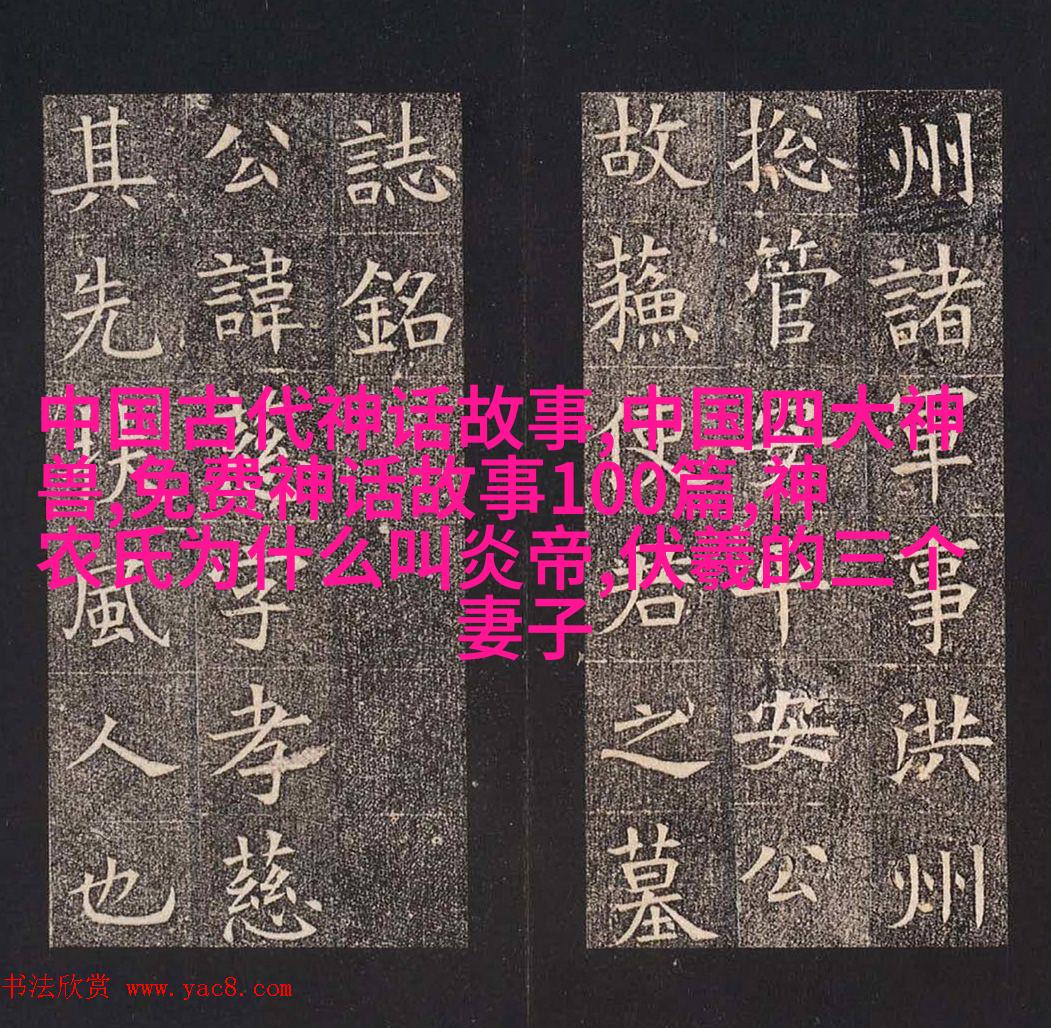 州諸軍事洪州
捴管安平安公
故蘓使君之墓
誌銘
公諱慈字孝慈
其先扶風人也
中国古代神话故事,中国四大神
兽,免费神话故事100篇,神
农氏为什么叫炎帝,伏羲的三个
妻子
书法欣赏 www.yac8.com